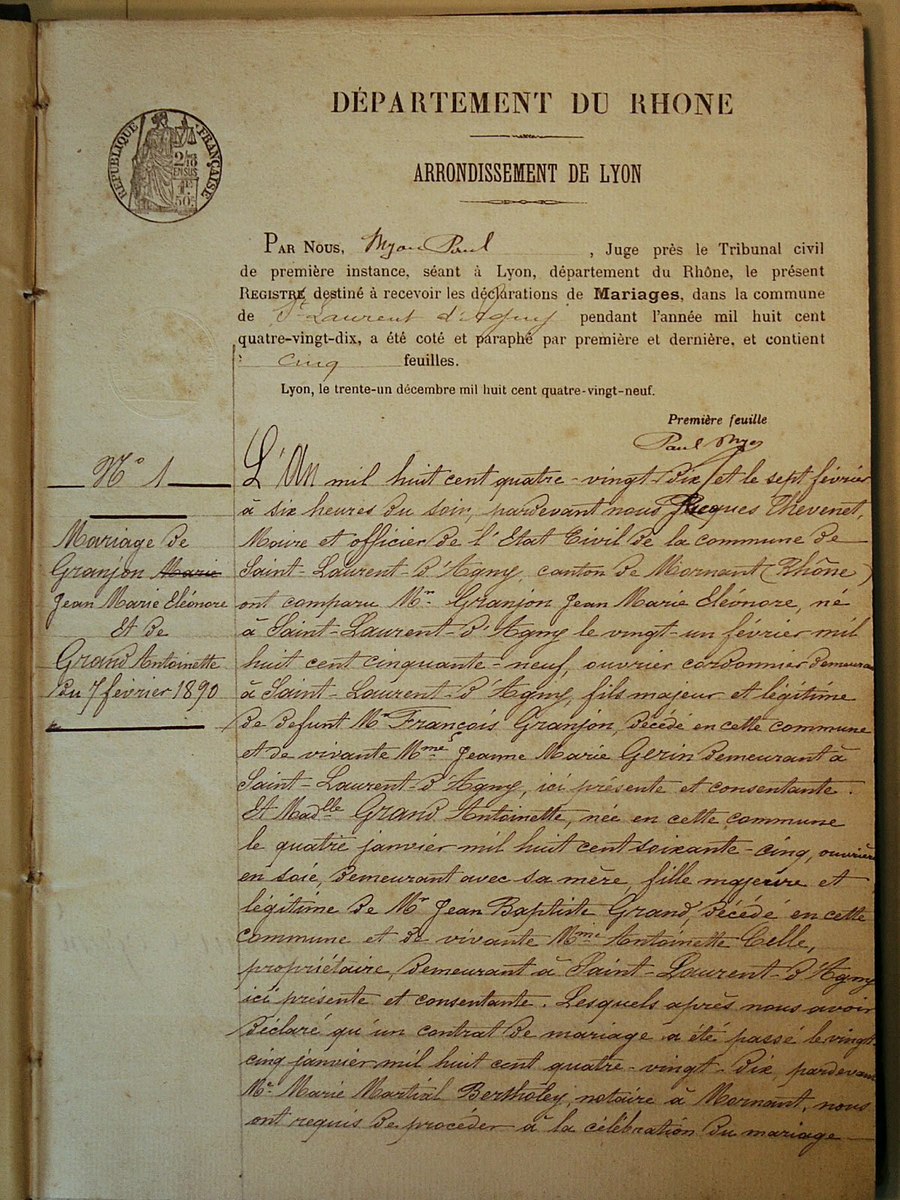 DÉPARTEMENT DU RHONE
ARRONDISSEMENT DE LYON
RÉPUBLIQUE FRANÇAISE
2/10
EN SUS
50c
PAR NOUS, Paul , Juge près le Tribunal civil
de première instance, séant à Lyon, département du Rhône, le présent
REGISTRE destiné à recevoir les déclarations de Mariages, dans la commune
de St Laurent d'Agny pendant l'année mil huit cent
quatre-vingt-dix, a été coté et paraphé par première et dernière, et contient
cinq feuilles.
Lyon, le trente-un décembre mil huit cent quatre-vingt-neuf.
Première feuille
Paul
N° 1
Mariage de
Granjon Marie
Jean Marie Eléonore
Et de
Grand Antoinette
du 7 février 1890
L'An mil huit cent quatre-vingt-dix et le sept février
à six heures du soir, pardevant nous Jacques Thevenet,
Maire et officier de l'Etat Civil de la commune de
Saint-Laurent-d'Agny, canton de Mornant (Rhône)
ont comparu Mr Granjon Jean Marie Eléonore, né
à Saint-Laurent-d'Agny le vingt-un février mil
huit cent cinquante-neuf, ouvrier cordonnier demeurant
à Saint-Laurent-d'Agny, fils majeur et légitime
de defunt Mr François Granjon, décédé en cette commune
et de vivante Mme Jeanne Marie Gerin demeurant à
Saint-Laurent-d'Agny, ici présente et consentante.
Et Madlle Grand Antoinette, née en cette commune
le quatre janvier mil huit cent soixante-cinq, ouvrière
en soie, demeurant avec sa mère, fille majeure et
légitime de Mr Jean Baptiste Grand, décédé en cette
commune et de vivante Mme Antoinette Celle,
propriétaire, demeurant à Saint-Laurent-d'Agny
ici présente et consentante. Lesquels après nous avoir
déclaré qu'un contrat de mariage a été passé le vingt-
cinq janvier mil huit cent quatre-vingt-dix, pardevant
Me Marie Martial Bertholey, notaire à Mornant, nous
ont requis de procéder à la célébration du mariage